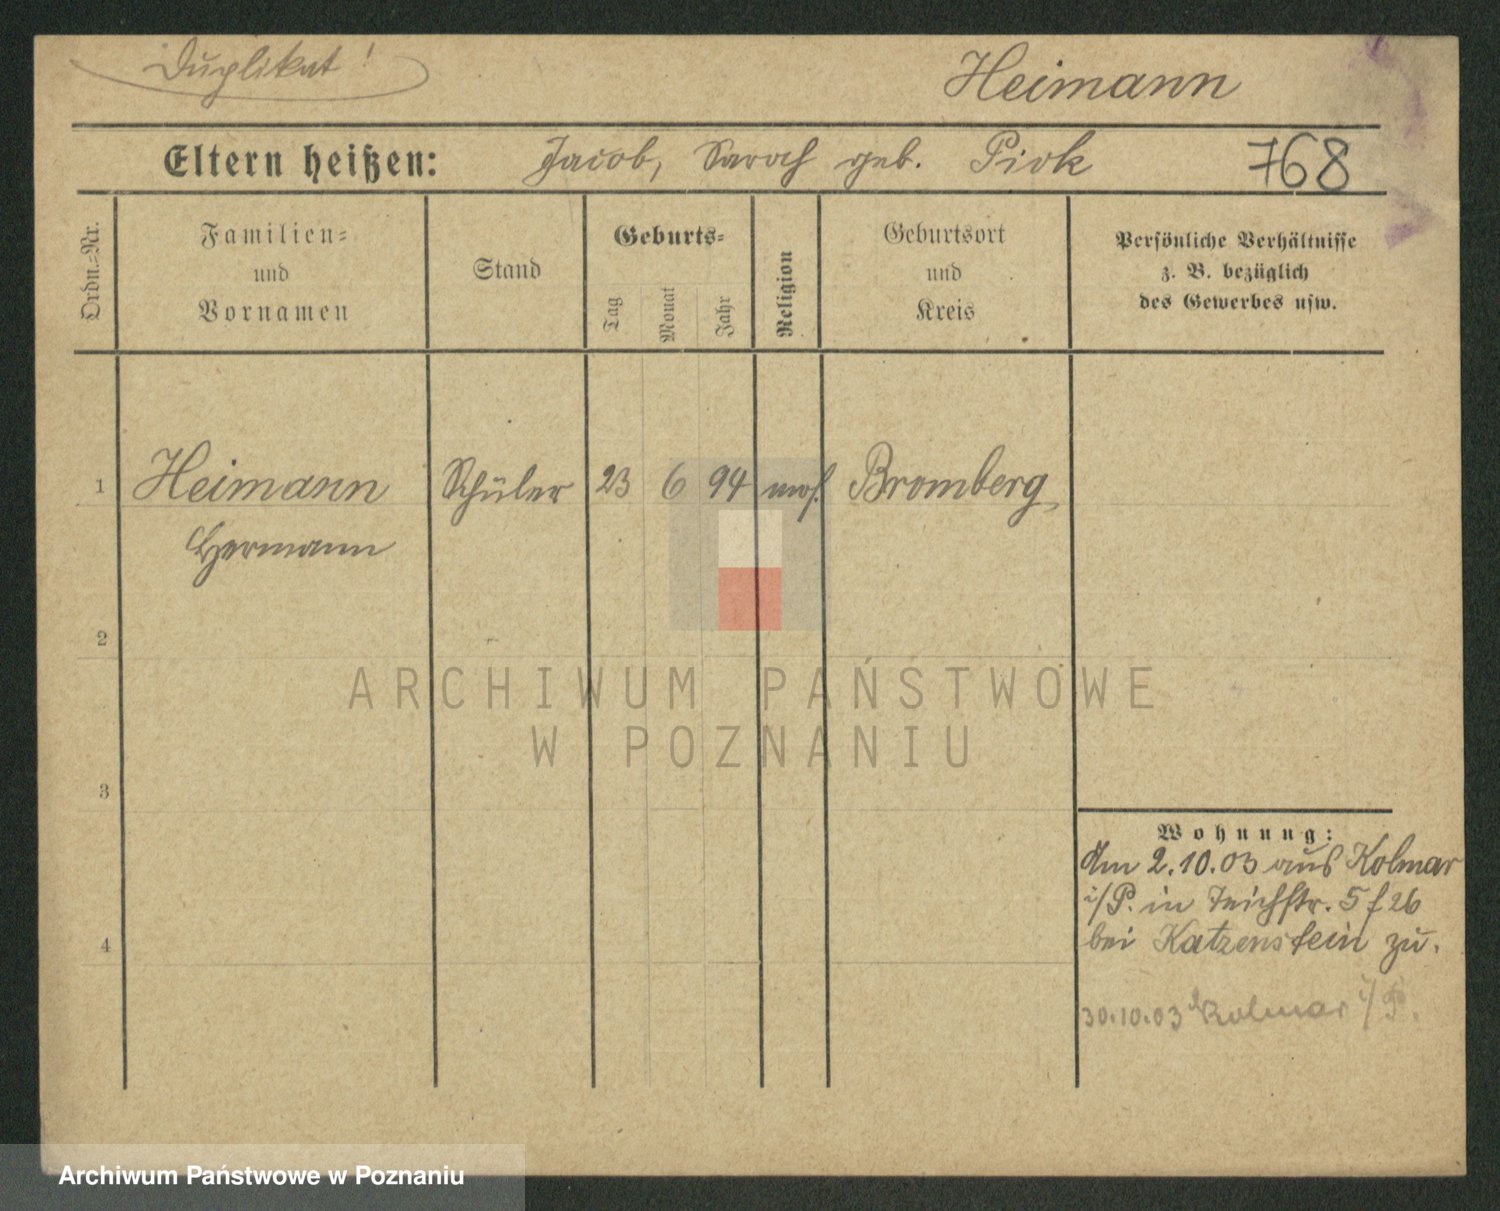 Duplikat!
Heimann
Eltern heißen: Jacob, Sarah geb. Piok
768
Ordn.-Nr.
Familien-
und
Vornamen
Stand
Geburts-
Tag
Monat
Jahr
Religion
Geburtsort
und
Kreis
Persönliche Verhältnisse
z. B. bezüglich
des Gewerbes usw.
1 Heimann Schüler 23 6 94 mos. Bromberg
Hermann
2
3
4
Wohnung:
Am 2.10.03 aus Kolmar
i/P. in Teichstr. 5 f 26
bei Katzenstein zu.
30.10.03 Kolmar i/P.
ARCHIWUM PAŃSTWOWE
W POZNANIU
Archiwum Państwowe w Poznaniu